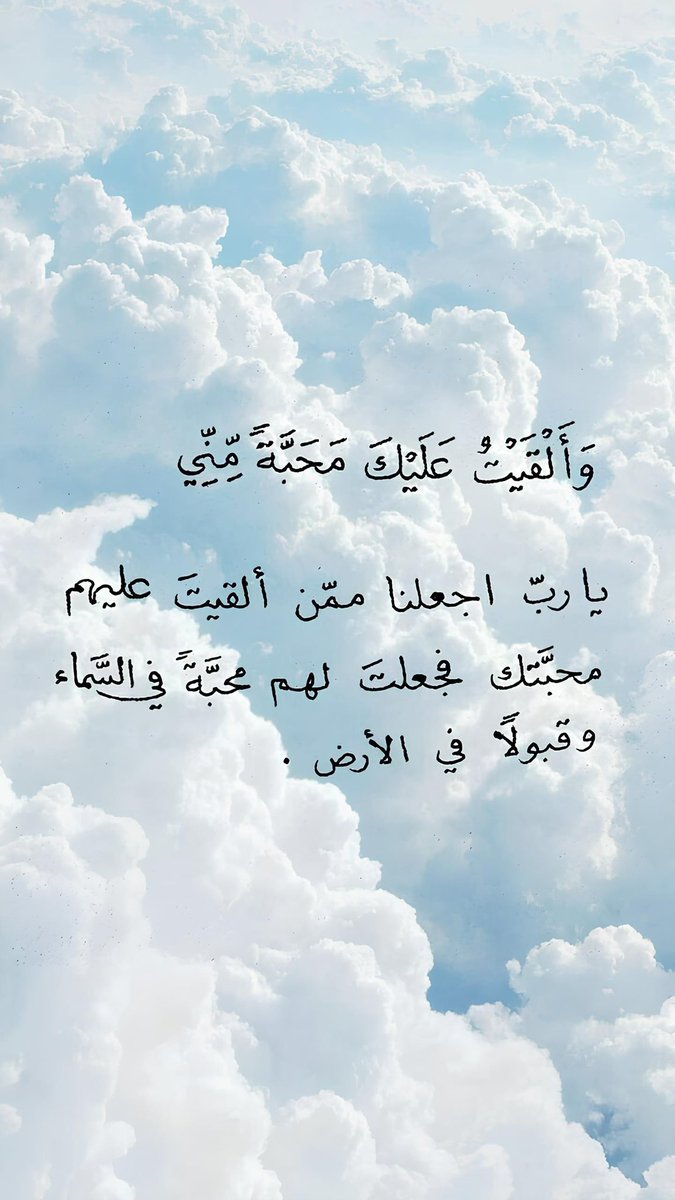 وَأَلْقَيْتُ عَلَيْكَ مَحَبَّةً مِّنِّي
يا ربّ اجعلنا ممّن ألقيتَ عليهم
محبَّتك فجعلتَ لهم محبَّةً في السَّماء
وقبولًا في الأرض .